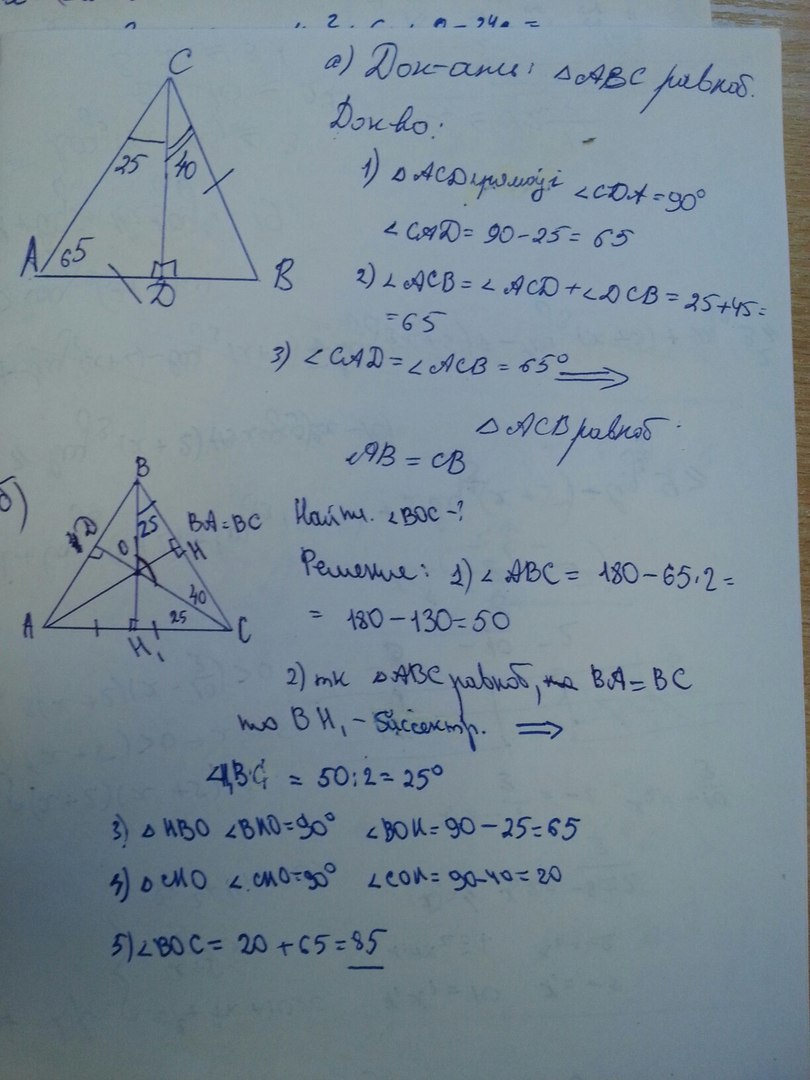 а) Док-ать: △ABC равноб.
Док-во:
1) △ACD прямоуг ∠CDA = 90°
∠CAD = 90-25 = 65
2) ∠ACB = ∠ACD + ∠DCB = 25+45 =
= 65
3) ∠CAD = ∠ACB = 65° ⟹
△ACB равноб.
AB = CB
C
25
40
A
65
D
B
б)
B
25
BA = BC
D
O
H
40
A
25
C
H₁
Найти. ∠BOC - ?
Решение: 1) ∠ABC = 180-65·2 =
= 180-130=50
2) тк △ABC равноб, BA = BC
то BH₁ - биссектр. ⟹
= 50:2 = 25°
3) △HBO ∠BHO=90° ∠BOH = 90-25=65
4) △CHO ∠CHO=90° ∠COH = 90-40=20
5) ∠BOC = 20+65=85